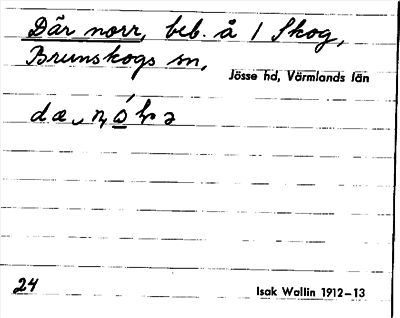 Där norr, beb. å 1 Skog,
Brunskogs sn,
Jösse hd, Värmlands län
24
Isak Wallin 1912–13